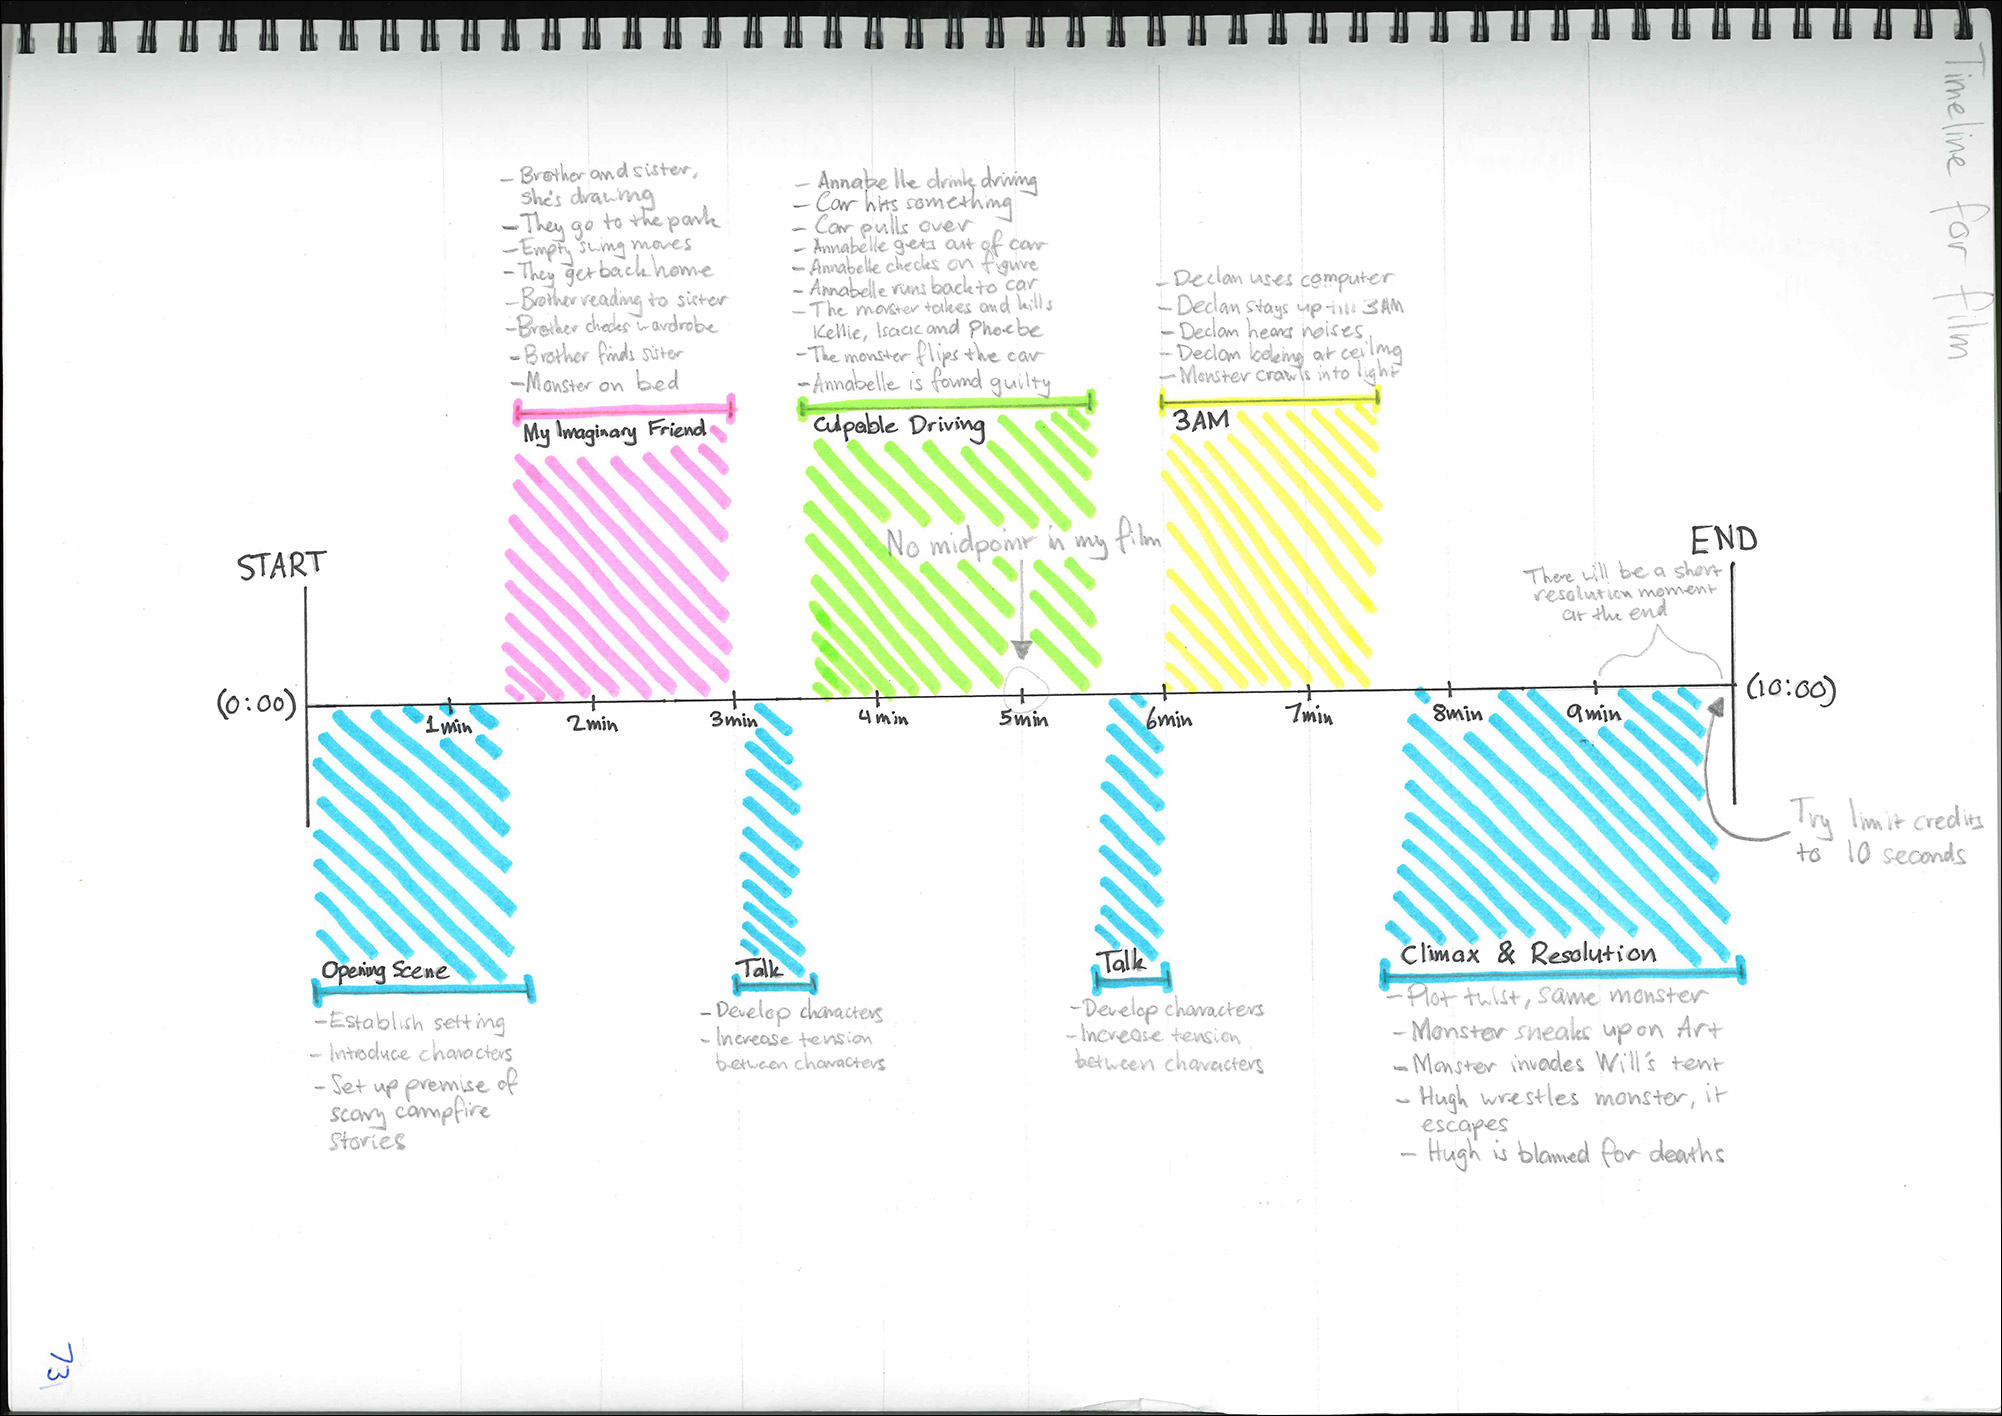 Timeline for film
- Brother and sister,
she's drawing
- They go to the park
- Empty swing moves
- They get back home
- Brother reading to sister
- Brother checks wardrobe
- Brother finds sister
- Monster on bed
My Imaginary Friend
- Annabelle drink driving
- Car hits something
- Car pulls over
- Annabelle gets out of car
- Annabelle checks on figure
- Annabelle runs back to car
- The monster takes and kills
Kellie, Isaac and Phoebe
- The monster flips the car
- Annabelle is found guilty
Culpable Driving
- Declan uses computer
- Declan stays up till 3AM
- Declan hears noises
- Declan looking at ceiling
- Monster crawls into light
3AM
No midpoint in my film
START
END
There will be a short
resolution moment
at the end
(0:00)
1min
2min
3min
4min
5min
6min
7min
8min
9min
(10:00)
Try limit credits
to 10 seconds
Opening Scene
- Establish setting
- Introduce characters
- Set up premise of
scary campfire
stories
Talk
- Develop characters
- Increase tension
between characters
Talk
- Develop characters
- Increase tension
between characters
Climax & Resolution
- Plot twist, same monster
- Monster sneaks up on Art
- Monster invades Will's tent
- Hugh wrestles monster, it
escapes
- Hugh is blamed for deaths
73